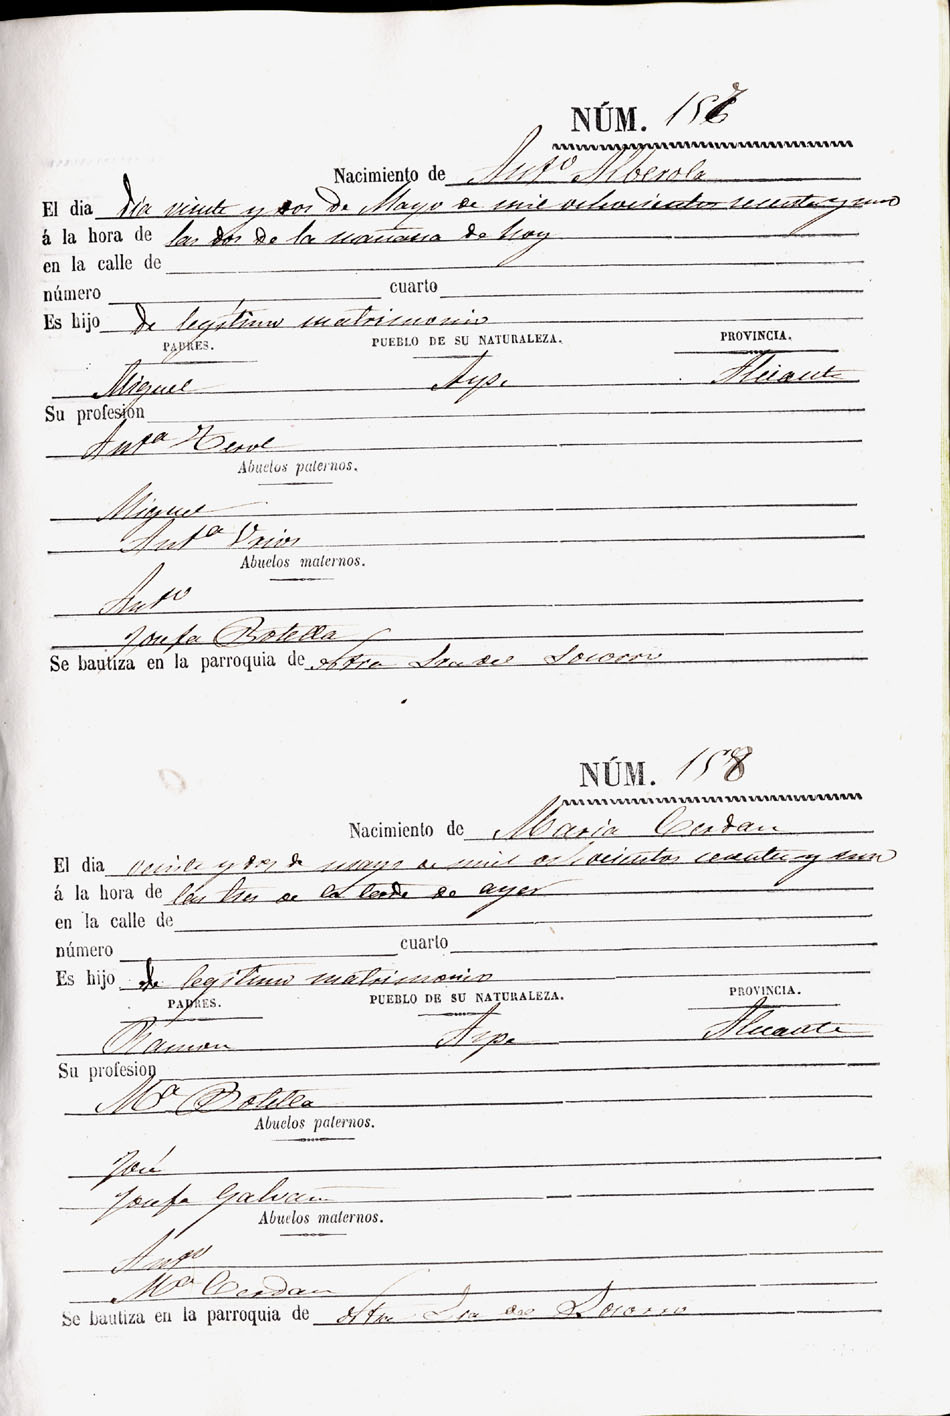 NÚM. 157
Nacimiento de Antº Alberola
El dia dia veinte y dos de Mayo de mil ochocientos sesenta y uno
á la hora de las dos de la mañana de hoy
en la calle de
número cuarto
Es hijo de legitimo matrimonio
PADRES. PUEBLO DE SU NATURALEZA. PROVINCIA.
Miguel Aspe Alicante
Su profesion
Antª Terol
Abuelos paternos.
Miguel
Antª Urios
Abuelos maternos.
Antº
Josefa Botella
Se bautiza en la parroquia de Ntra Sra del Socorro
NÚM. 158
Nacimiento de Maria Cerdan
El dia veinte y dos de mayo de mil ochocientos sesenta y uno
á la hora de las tres de la tarde de ayer
en la calle de
número cuarto
Es hijo de legitimo matrimonio
PADRES. PUEBLO DE SU NATURALEZA. PROVINCIA.
Ramon Aspe Alicante
Su profesion
Mª Botella
Abuelos paternos.
José
Josefa Galvañ
Abuelos maternos.
Antº
Mª Cerdan
Se bautiza en la parroquia de Ntra Sra del Socorro